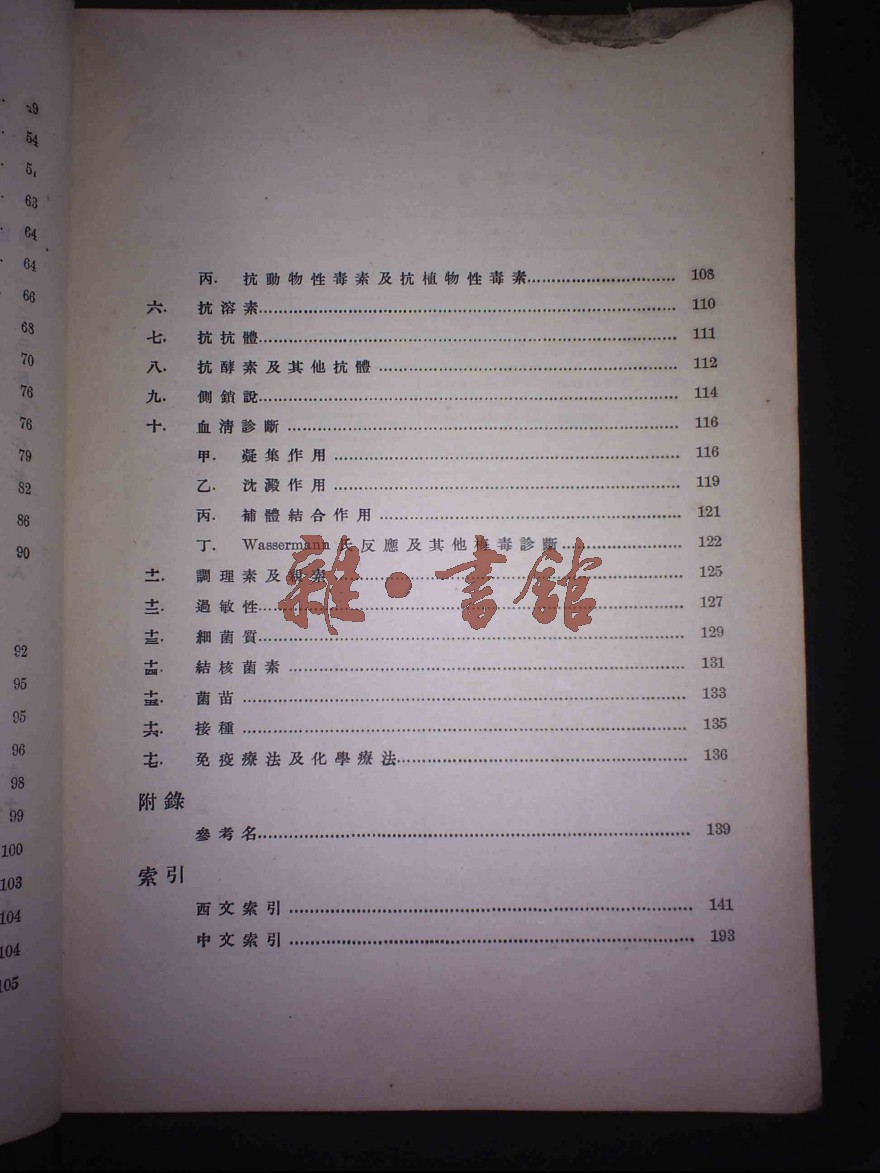 49
54
63
64
64
66
68
70
76
76
79
82
86
90
92
95
95
96
98
99
100
103
104
104
105
丙. 抗動物性毒素及抗植物性毒素 108
六. 抗溶素 110
七. 抗抗體 111
八. 抗酵素及其他抗體 112
九. 側鎖說 114
十. 血清診斷 116
甲. 凝集作用 116
乙. 沈澱作用 119
丙. 補體結合作用 121
丁. Wassermann 氏反應及其他梅毒診斷 122
十一. 調理素及親索 125
十二. 過敏性 127
十三. 細菌質 129
十四. 結核菌素 131
十五. 菌苗 133
十六. 接種 135
十七. 免疫療法及化學療法 136
附錄
參考名 139
索引
西文索引 141
中文索引 193
雜·書館